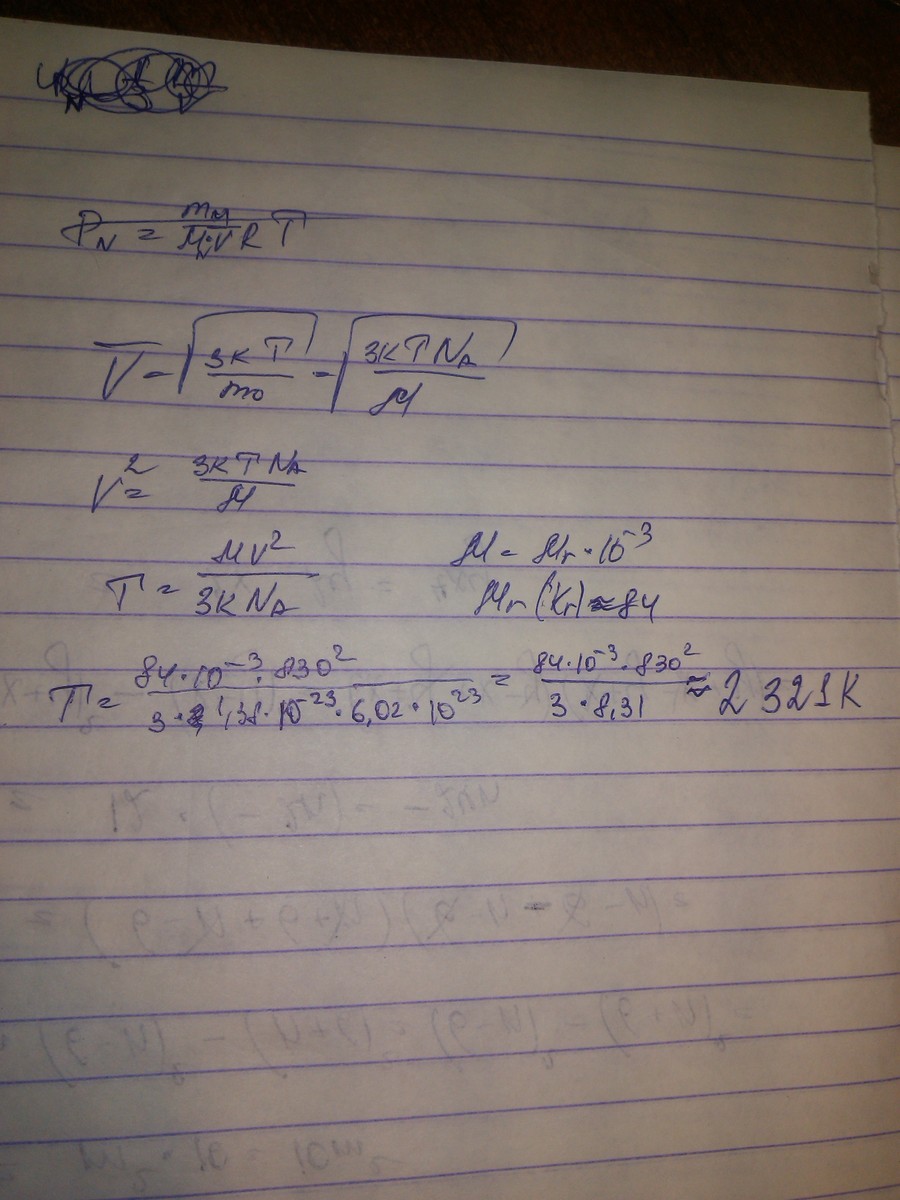 P_N = m_N / (M_N · V) R T
V̅ = √(3kT / m₀) = √(3kTN_A / M)
V² = 3kTN_A / M
T = MV² / 3kN_A
M = Mr · 10⁻³
Mr (Kr) ≈ 84
T = 84·10⁻³·830² / 3·1,38·10⁻²³·6,02·10²³ = 84·10⁻³·830² / 3·8,31 ≈ 2321K